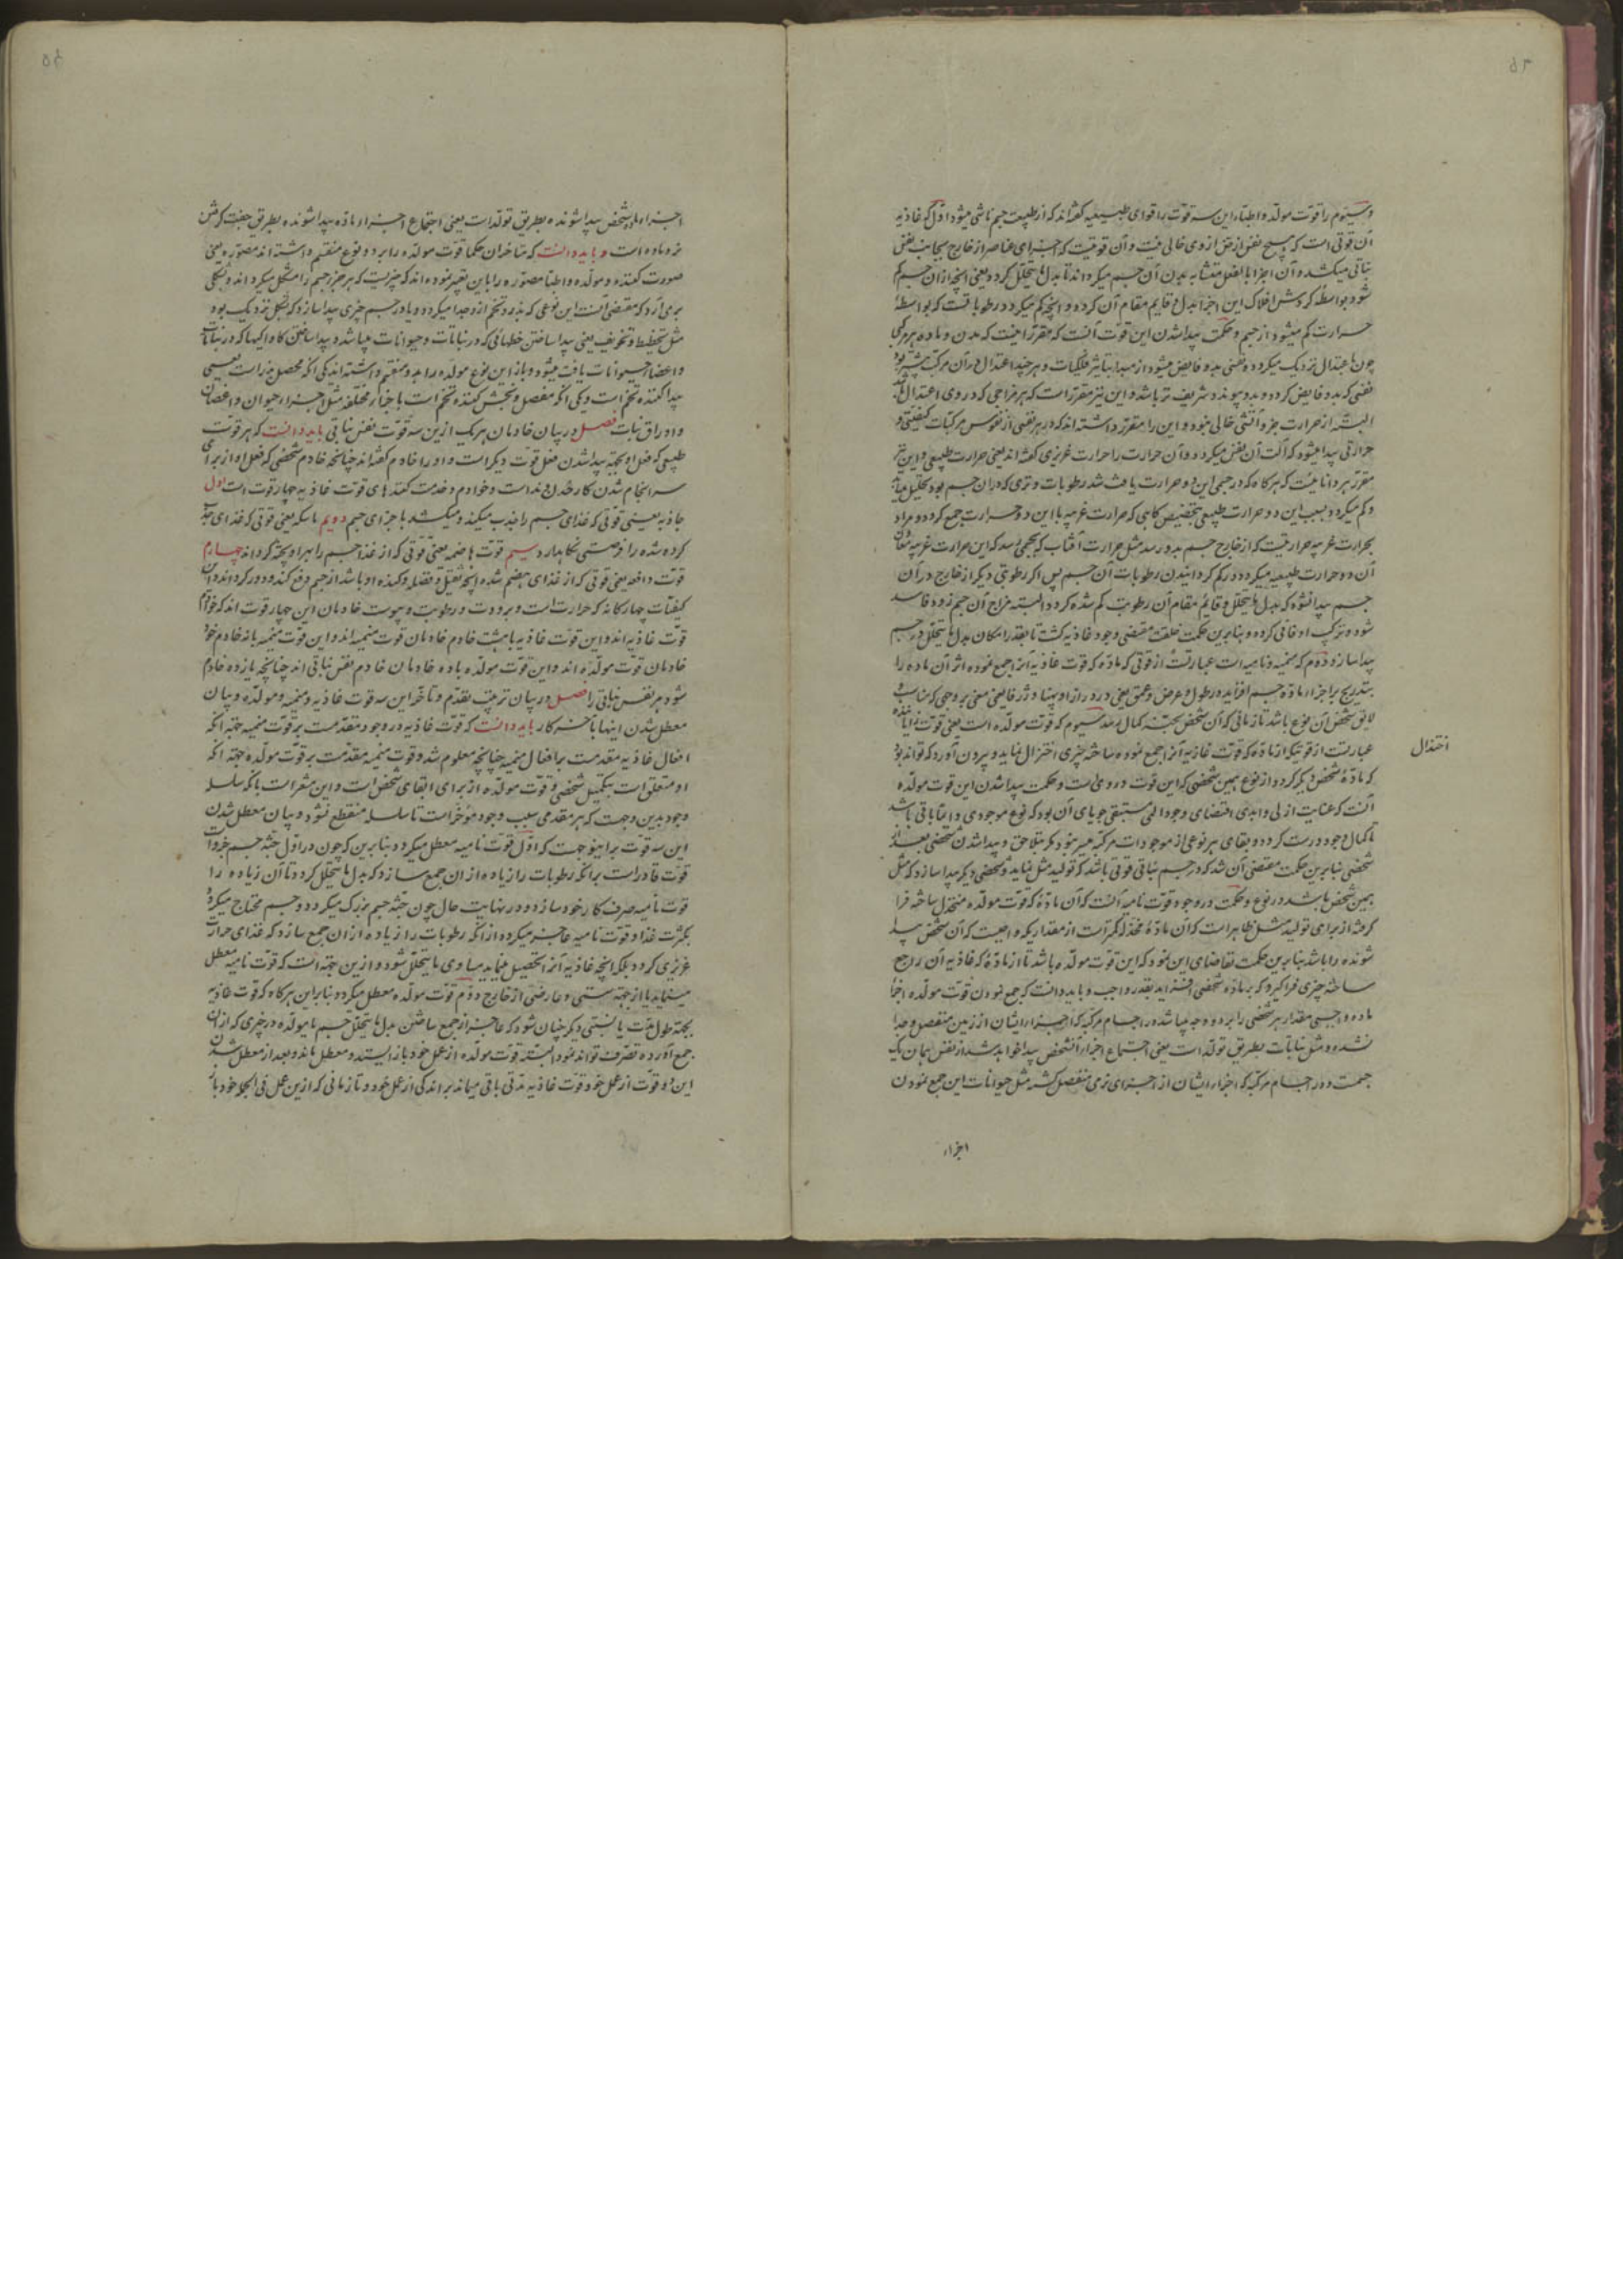 وسیّوم را قوّت مولّد و اطباء این سه قوّت را قوای طبیعیه گفته‌اند که از طبیعت جسم ناشی میشود اوّل که غاذیه
آن قوتی است که هیچ نفس از نفوس از وی خالی نیست و آن قوتیست که اجزای عناصر از خارج بجانب نفس
نباتی میکشد و آن اجزا بالفعل متشابه بدن آن جسم میگرداند تا بدل ما یتحلل گردد یعنی آنچه از آن جسم کم
شود بواسطه گردش افلاک این اجزا بدل و قایم مقام آن گردد و آنچه کم میگردد رطوباتست که بواسطهٔ
حرارت کم میشود از جسم و حکمت پیدا شدن این قوّت آنست که مقرّر است که بدن و ماده هر مرکبی
چون باعتدال نزدیک میگردد نفسی بدو فایض میشود از مبدا بتاثیر فلکیات و هر چند اعتدال در آن مرکب بیشتر بود
نفسی که بدو فایض گردد و بدو پیوندد شریف تر باشد و این نیز مقرّر است که هر مزاجی که در وی اعتدال باشد
البتّه از حرارت جزو آتشی خالی نبود و این را مقرّر داشته‌اند که در هر نفسی از نفوس مرکبات کیفیتی و
حرارتی پیدا میشود که آلت آن نفس میگردد و آن حرارت را حرارت غریزی گفته‌اند یعنی حرارت طبیعی و این نیز
مقرّر هر دانائیست که هرگاه که در جسمی این دو حرارت یافت شد رطوبات و تری که در آن جسم بود تحلیل میابد
و کم میگردد بسبب این دو حرارت طبیعی بتخصیص گاهی که حرارت غریبه با این دو حرارت جمع گردد و مراد
بحرارت غریبه حرارتیست که از خارج جسم بدو رسد مثل حرارت آفتاب که بجسمی رسد که این حرارت غریبه معاون
آن دو حرارت طبیعیه میگردد در کم گردانیدن رطوبات آن جسم پس اگر رطوبتی دیگر از خارج در آن
جسم پیدا نشود که بدل ما یتحلل و قائم مقام آن رطوبت کم شده گردد البته مزاج آن جسم زود فاسد
شود و ترکیب او فانی گردد و بنابرین حکمت خلقت مقتضی وجود غاذیه گشت تا بقدر امکان بدل ما یتحلل در جسم
پیدا سازد دوّم که منمیه و نامیه است عبارتست از قوتی که مادّه که قوت غاذیه آنرا جمع نموده اثر آن ماده را
بتدریج بر اجزاء مادّه جسم افزاید در طول و عرض و عمق یعنی در درازا و پهنا و ژرفا یعنی بر وجهی که مناسب و
لایق شخص آن نوع باشد تا زمانی که آن شخص بحیّز کمال رسد سیوم که قوت مولّده است یعنی قوت زایاننده
عبارتست از قوتیکه از مادّه که قوت غاذیه آنرا جمع نموده ساخته چیزی اختزال نماید و بیرون آورد که تواند بود
که مادّهٔ شخص دیگر گردد از نوع همین شخصی که این قوت در وی است و حکمت پیدا شدن این قوت مولّده
آنست که عنایت ازلی و ابدی اقتضای وجود الهی مستبقی جویای آن بود که نوع موجودی دائما باقی باشد
تا کمال وجود درست گردد و بقای هر نوعی از موجودات مرکبه میسر نبود مگر بتلاحق و پیدا شدن شخصی بعد از
شخصی بنابرین حکمت مقتضی آن شد که در جسم نباتی قوتی باشد که تولید مثل نماید و شخصی دیگر پیدا سازد که مثل
همین شخص باشد در نوع و حکمت در وجود قوّت نامیه آنست که آن مادّهٔ که قوت مولّده منختزل ساخته فرا
گرفته از برای تولید مثل ظاهر است که آن مادّهٔ مختزله کمتر است از مقداریکه واجبست که آن شخص پیدا
شونده را باشد بنابرین حکمت تقاضای این نمود که این قوّت مولّده باشد تا از مادّهٔ که غاذیه آن را جمع
ساخته چیزی فرا گیرد که بر مادّه شخصی افزاید بقدر واجب و باید دانست که جمع نمودن قوّت مولّده اجزا
ماده واجبی مقدار هر شخصی را بر دو وجه میباشد در اجسام مرکبه که اجزاء ایشان از زمین منفصل و جدا
نشده و مثل نباتات بطریق تولّد است یعنی اجتماع اجزاء آن شخص پیدا خواهد شد از نفس همان یک
جهت و در اجسام مرکبه که اجزاء ایشان از اجزای زمین منفصل گشته مثل حیوانات این جمع نمودن
اختذال
اجزاء
اجزاء مادّه شخص پیدا شونده بطریق تولّد است یعنی اجتماع اجزاء مادّه پیدا شونده بطریق جفت گرفتن
نر و ماده است و باید دانست که متاخران حکما قوّت مولّده را بر دو نوع منقسم داشته‌اند مصوّره یعنی
صورت کننده و مولّده و اطبا مصوّره را باین تعبیر نموده‌اند که چیزیست که هر جزو جسم را مشکل میگرداند و بشکلی
برمی‌آرد که مقتضی آنست این نوعی که بذر و تخم ازو جدا میگردد و یا در جسم چیزی پیدا سازد که بشکل نزدیک بود
مثل تخطیط و تجویف یعنی پیدا ساختن خطهائی که در نباتات و حیوانات میباشد و پیدا ساختن کاواکیها که در نباتات
و اعضاء حیوانات یافت میشود و باز این نوع مولّده را بدو منقسم داشته‌اند یکی آنکه محصل بذر است یعنی
پیدا کننده تخم است و یکی آنکه مفصل و بخش کننده تخم است باجزاء مختلفه مثل اجزاء حیوان و اغصان
و اوراق نبات فصل در بیان خادمان هر یک ازین سه قوّت نفس نباتی باید دانست که هر قوّت
طبیعی که فعل او بجهة پیدا شدن فعل قوّت دیگر است او را خادم گفته‌اند چنانچه خادم شخصی که فعل او از برای
سرانجام شدن کار خداوند است و خوادم و خدمت کننده‌های قوّت غاذیه چهار قوت است اول
جاذبه یعنی قوّتی که غذای جسم را جذب میکند و میکشد باجزای جسم دویم ماسکه یعنی قوتی که غذای جذب
کرده شده را فرصتی نگاه دارد سیم قوّت هاضمه یعنی قوتی که از غذا جسم را بهرا و پخته گرداند چهارم
قوّت دافعه یعنی قوتی که از غذای هضم شده آنچه ثقیل و فضله و گنده او باشد از جسم دفع کند و دور گرداند و آن
کیفیّات چهارگانه که حرارت است و برودت و رطوبت و یبوست خادمان این چهار قوت اند که خوادم
قوّت غاذیه اند و این قوّت غاذیه با هشت خادم خادمان قوت منمیه اند و این قوّت منمیه با نه خادم خود
خادمان قوّت مولّده اند و این قوّت مولّده با ده خادمان خادم نفس نباتی اند چنانچه یازده خادم
شود هر نفس نباتی را فصل در بیان ترتیب تقدّم و تاخّر این سه قوت غاذیه و منمیه و مولّده و بیان
معطل شدن اینها بآخر کار باید دانست که قوّت غاذیه در وجود مقدّمست بر قوّت منمیه بجهة آنکه
افعال غاذیه مقدمست بر افعال منمیه چنانچه معلوم شد و قوت منمیه مقدّمست بر قوّت مولّده بجهة آنکه
او متعلق است بتکمیل شخصی و قوّت مولّده از برای ابقای شخص است و این مشعر است بآنکه سلسله
وجود بدین وجهست که هر مقدمی سبب وجود مؤخّر است تا سلسله منقطع نشود و بیان معطل شدن
این سه قوّت براینوجهست که اوّل قوّت نامیه معطل میگردد بنابرین که چون در اوّل جثّه جسم خردست
قوّت قادر است برانکه رطوبات را زیاده از ان جمع سازد که بدل ما یتحلل گردد تا آن زیاده را
قوت نامیه صرف کار خود سازد و در نهایت حال چون جثّه جسم بزرگ میگردد و جسم محتاج میگردد
بکثرت غذا و قوّت نامیه عاجز میگردد از آنکه رطوبات را زیاده از ان جمع سازد که غذای حرارت
غریزی گردد بلکه آنچه غاذیه آنرا تحصیل مینماید مساوی ما یتحلّل شود و ازین جهة است که قوّت نامیه معطل
مینماید یا از جهة سستی و عارضی از خارج دوّم قوّت مولّده معطل میگردد بنابراین هرگاه که قوت غاذیه
بجهة طول مدّت یا بسببی دیگر چنان شود که عاجز از جمع ساختن بدل ما یتحلل جسم یا مولّده در چیزی که از آن
جمع آورده تصرّف تواند نمود البتّه قوّت مولّده از عمل خود باز ایستد و معطل ماند و بعد از معطل شدن
این دو قوّت از عمل خود قوّت غاذیه مدتی باقی میماند بر اندکی از عمل خود و تا زمانی که ازین عمل فی الجمله خود باز